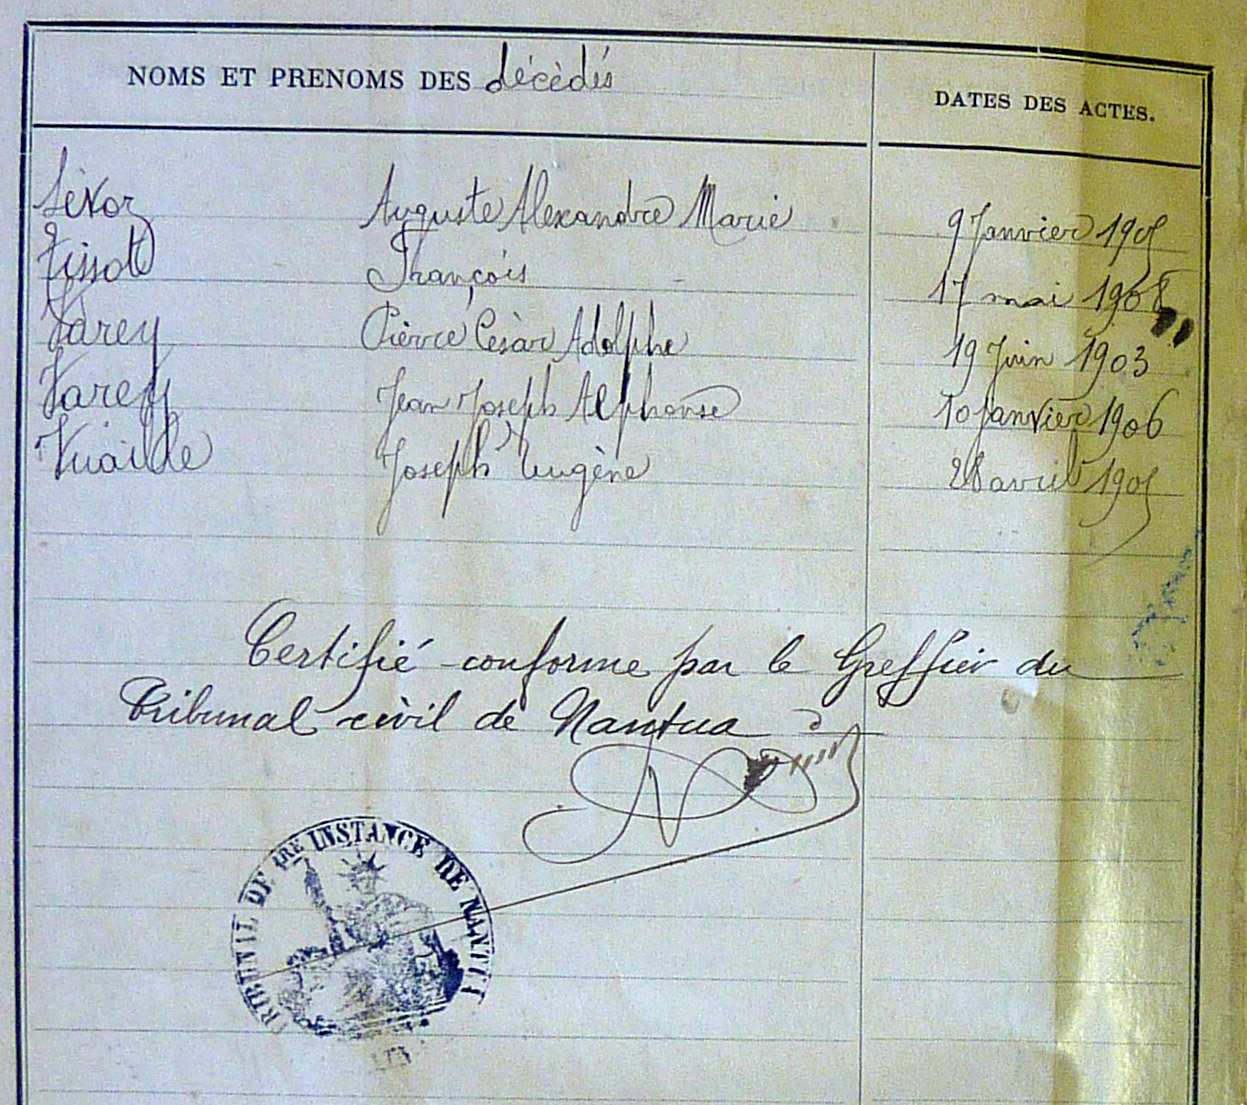 NOMS ET PRENOMS DES décèdés
DATES DES ACTES.
Auguste Alexandre Marie 9 Janvier 1905
Tissot François 17 mai 1908
Varey Pièrre Cesàr Adolphe 19 Juin 1903
Varey Jean Joseph Alphonse 10 janvier 1906
Vuaille Joseph Eugène 28 avril 1905
Certifié conforme par le Greffier du
Tribunal civil de Nantua
TRIBUNAL DE 1RE INSTANCE DE NANTUA